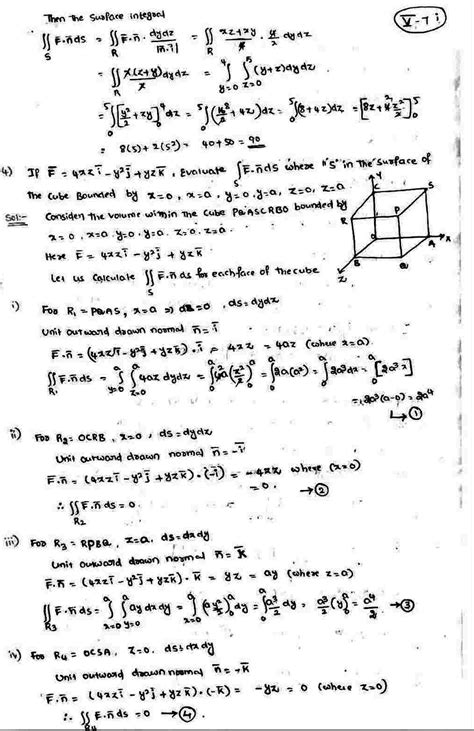 Then the Surface integral
V-7 i
∬_S F̄·n̄ ds = ∬_R F̄·n̄ · dydz/|n̄·ī| = ∬_R (xz+xy)/ · /2 dydz
= ∬_R x(z+y)/x dydz = ∫_{y=0}^{4} ∫_{z=0}^{5} (y+z)dydz
= ∫_0^5 [y²/2 + zy]_0^4 dz = ∫_0^5 (4²/2 + 4z)dz = ∫_0^5 (8+4z)dz = [8z + 4z²/2]_0^5
= 8(5) + 2(5²) = 40+50 = 90
4) If F̄ = 4xzī - y²j̄ + yzk̄, Evaluate ∫_S F̄·n̄ ds where "S" in the Surface of
the cube Bounded by x=0, x=a, y=0, y=a, z=0, z=a
Sol:- Consider the volume within the cube PQASCRBO bounded by
x=0, x=a y=0, y=a, z=0, z=a.
Here F̄ = 4xzī - y²j̄ + yzk̄
Let us Calculate ∬_S F̄·n̄ ds for each face of the cube
Y
C
S
R
P
O
A
X
B
Q
Z
i) For R₁ = PQAS, x=a ⇒ dx=0, ds=dydz
Unit outward drawn normal n̄ = ī
F̄·n̄ = (4xzī - y²j̄ + yzk̄)·ī = 4xz = 4az (where x=a)
∬_{R₁} F̄·n̄ ds = ∫_{y=0}^{a} ∫_{z=0}^{a} 4az dydz = ∫_0^a 4a(z²/2)_0^a = ∫_0^a 2a(a²) = ∫_0^a 2a³dx = [2a³x]_0^a
= 2a³(a-0) = 2a⁴
↳ ①
ii) For R₂ = OCRB, x=0, ds=dydz
Unit outward drawn normal n̄ = -ī
F̄·n̄ = (4xzī - y²j̄ + yzk̄)·(-ī) = -4xz where (x=0)
= 0. → ②
∴ ∬_{R2} F̄·n̄ ds = 0.
iii) For R₃ = RPBQ, z=a, ds=dxdy
Unit outward drawn normal n̄ = k̄
F̄·n̄ = (4xzī - y²j̄ + yzk̄)·k̄ = yz = ay (where z=a)
∬_{R3} F̄·n̄ ds = ∫_{x=0}^{a} ∫_{y=0}^{a} ay dxdy = ∫_{x=0}^{a} (ay²/2)_0^a dy = ∫_0^a a³/2 dy = a³/2 (y)_0^a = a⁴/2 → ③
iv) For R₄ = OCSA, z=0, ds=dxdy
Unit outward drawn normal n̄ = -k̄
F̄·n̄ = (4xzī - y²j̄ + yzk̄)·(-k̄) = -yz = 0 (where z=0)
∴ ∬_{R4} F̄·n̄ ds = 0 → ④.